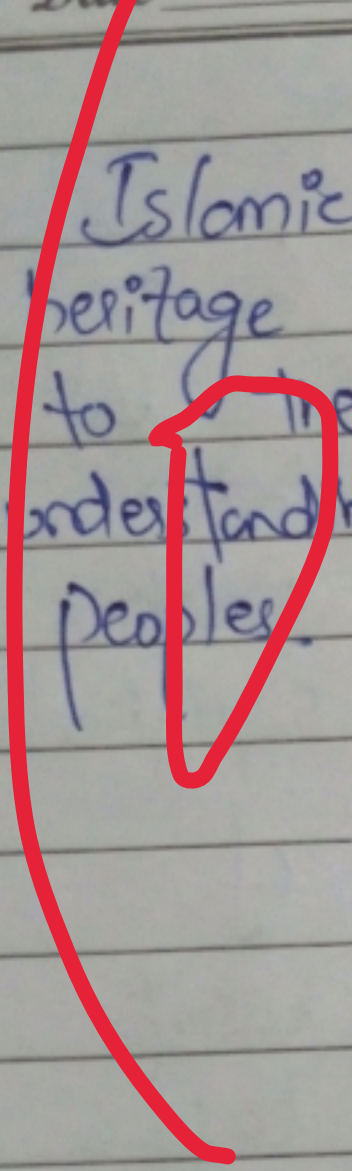 Islamic
heritage
to the
understand
peoples.